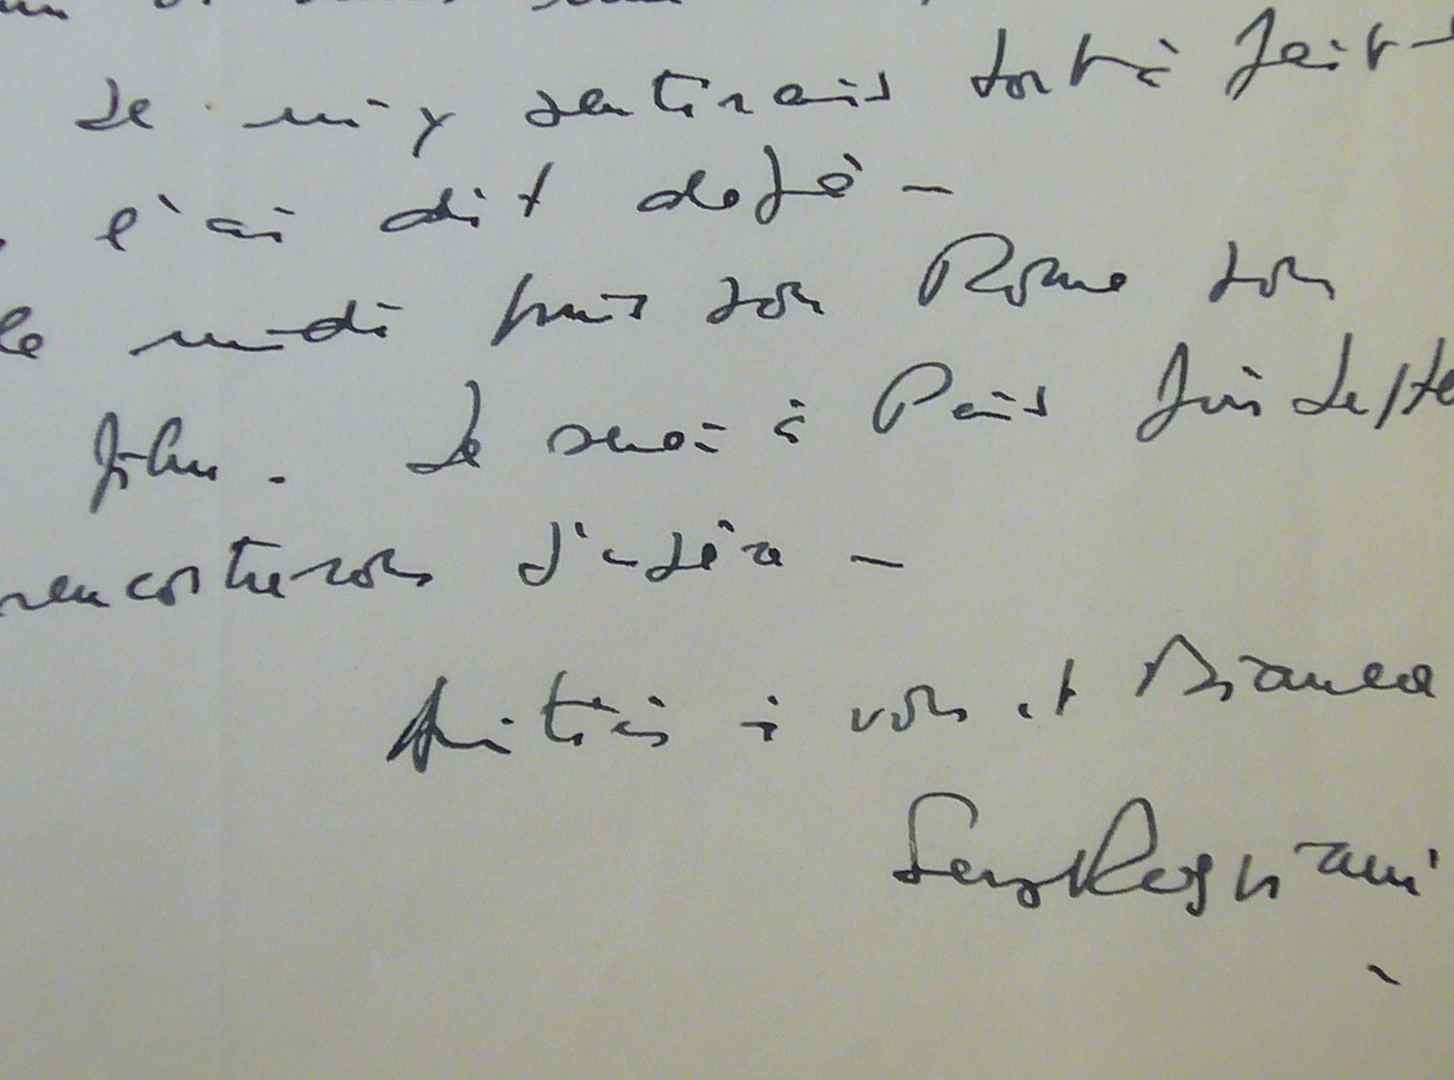 Je m'y sentirais tout à fait
l'ai dit déjà —
le midi puis sur Rome sur
John. Je serai à Paris fin Sept
rencontrerons d'ici là —
Amitiés à vous et Bianca
Serge Regnani